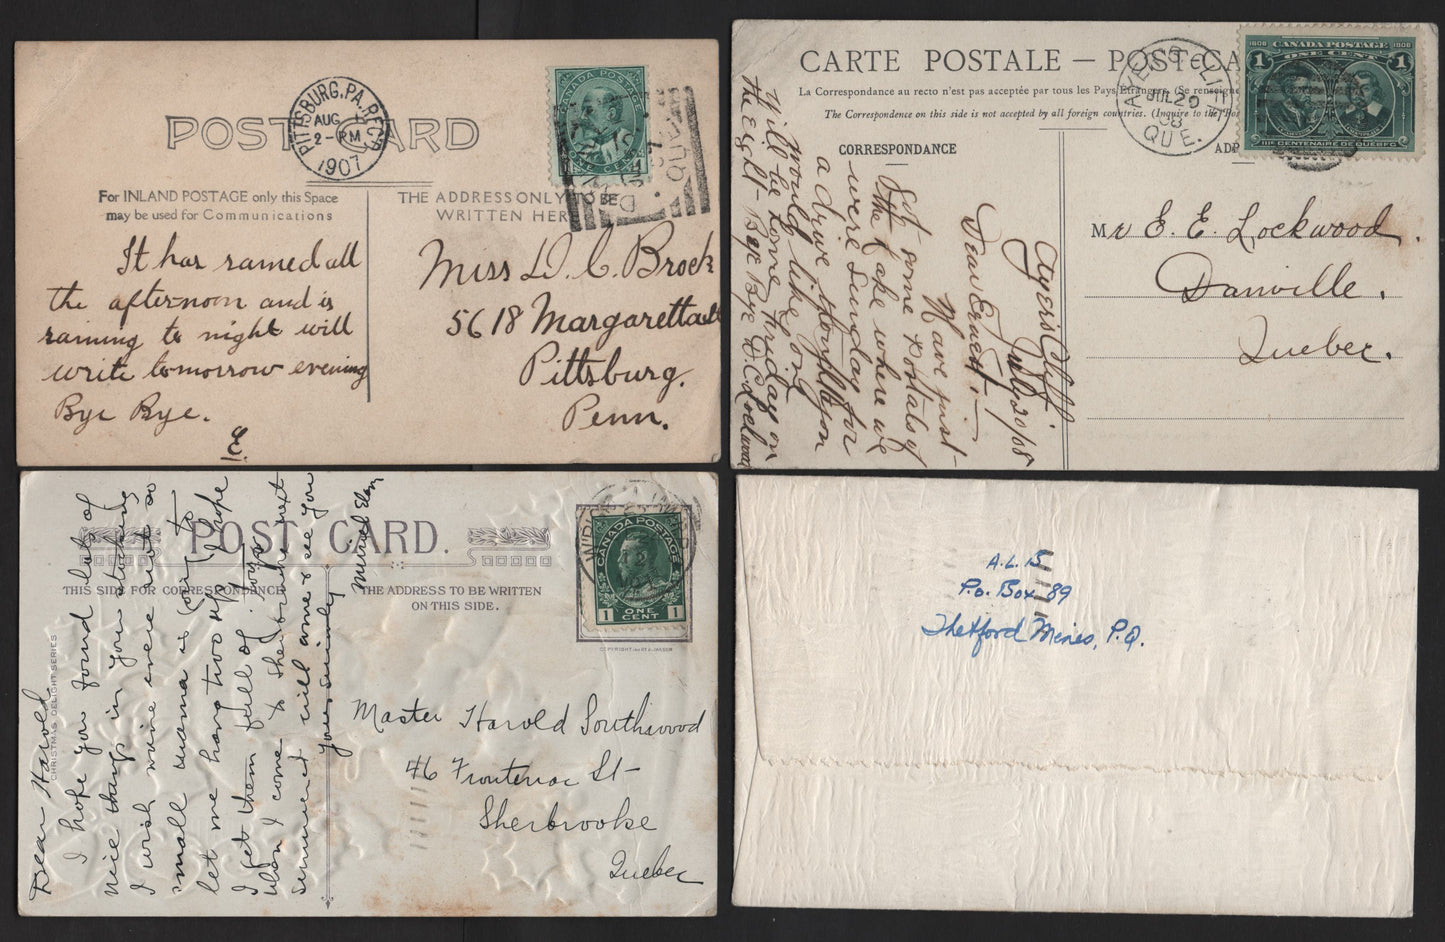 PITTSBURG, PA. REC'D
AUG
2 - PM
1907
POST CARD
CANADA POSTAGE
For INLAND POSTAGE only this Space
may be used for Communications
THE ADDRESS ONLY TO BE
WRITTEN HERE
QUE
It has rained all
the afternoon and is
raining to night will
write tomorrow evening
Bye Bye.
E
Miss D. C. Brock
5618 Margaretta st
Pittsburg,
Penn.
CARTE POSTALE — POST CA
La Correspondance au recto n'est pas acceptée par tous les Pays Etrangers. (Se renseigne
The Correspondence on this side is not accepted by all foreign countries. (Inquire to the Pos
CORRESPONDANCE
ADR
AYER'S CLIFF
JUL 20
08
QUE.
1608 CANADA POSTAGE 1908
1 ONE CENT 1
IIIe CENTENAIRE DE QUÉBEC
Ayers Cliff
July 20/08
Dear Ernest! —
Have just
got some postals of
the Lake where we
were Sunday for
a drive
would like
Will be home Friday on
the eight - Bye Bye D.C.
Mr E. E. Lockwood.
Danville.
Quebec.
POST CARD.
THIS SIDE FOR CORRESPONDENCE
THE ADDRESS TO BE WRITTEN
ON THIS SIDE.
CHRISTMAS DELIGHT SERIES
CANADA POSTAGE
1 ONE CENT 1
Dear Harold
I hope you found lots of
nice things in your stocking
I wish mine were not so
small mama is going to
let me hang two up I hope
I get them full of toys
when I come to Sherbrooke next
summer I will come & see you
yours sincerely
Muriel
Master Harold Southwood
46 Frontenac St -
Sherbrooke
Quebec
A.L.B
P.O. Box 89
Thetford Mines, P.Q.